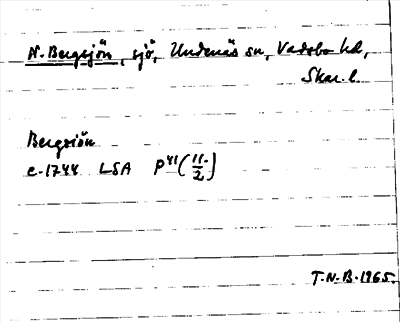 N. Bergsjön, sjö, Undenäs sn, Vadsbo hd,
Skar. l.
Bergsiön
c. 1744 LSA P41 (11/2)
T.N.B. 1965.